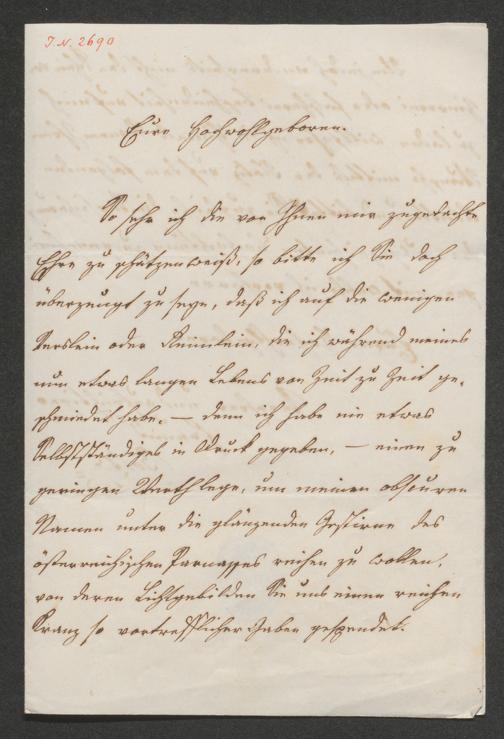 I. N. 2690
Eure Hochwohlgeboren.
So sehr ich die von Ihnen mir zugedachte
Ehre zu schätzen weiß, so bitte ich Sie doch
überzeugt zu seyn, daß ich auf die wenigen
Verslein oder Reimlein, die ich während meines
nun etwas langen Lebens von Zeit zu Zeit ge-
schmiedet habe, — denn ich habe nie etwas
Selbstständiges in Druck gegeben, — einen zu
geringen Werth lege, um meinen obscuren
Namen unter die glänzenden Gestirne des
österreichischen Parnasses reihen zu wollen,
von deren Lichtgebilden Sie uns einen reichen
Kranz so vortrefflicher Gaben gespendet.